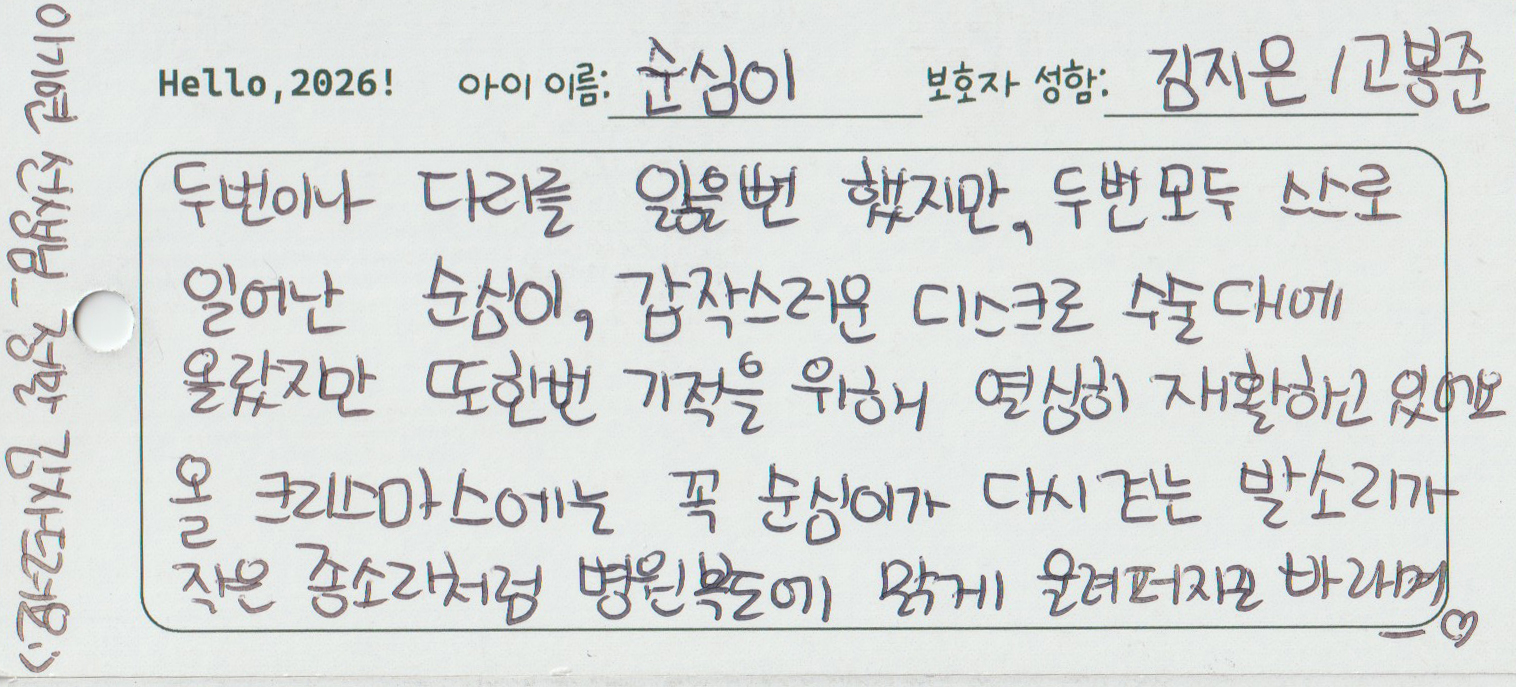 Hello,2026! 아이 이름: 순심이 보호자 성함: 김지은 / 고봉준
두번이나 다리를 잃을뻔 했지만, 두번모두 스스로
일어난 순심이, 갑작스러운 디스크로 수술대에
올랐지만 또한번 기적을 위해 열심히 재활하고 있어요
올 크리스마스에는 꼭 순심이가 다시 걷는 발소리가
작은 종소리처럼 병원복도에 맑게 울려퍼지길 바라며
-♡